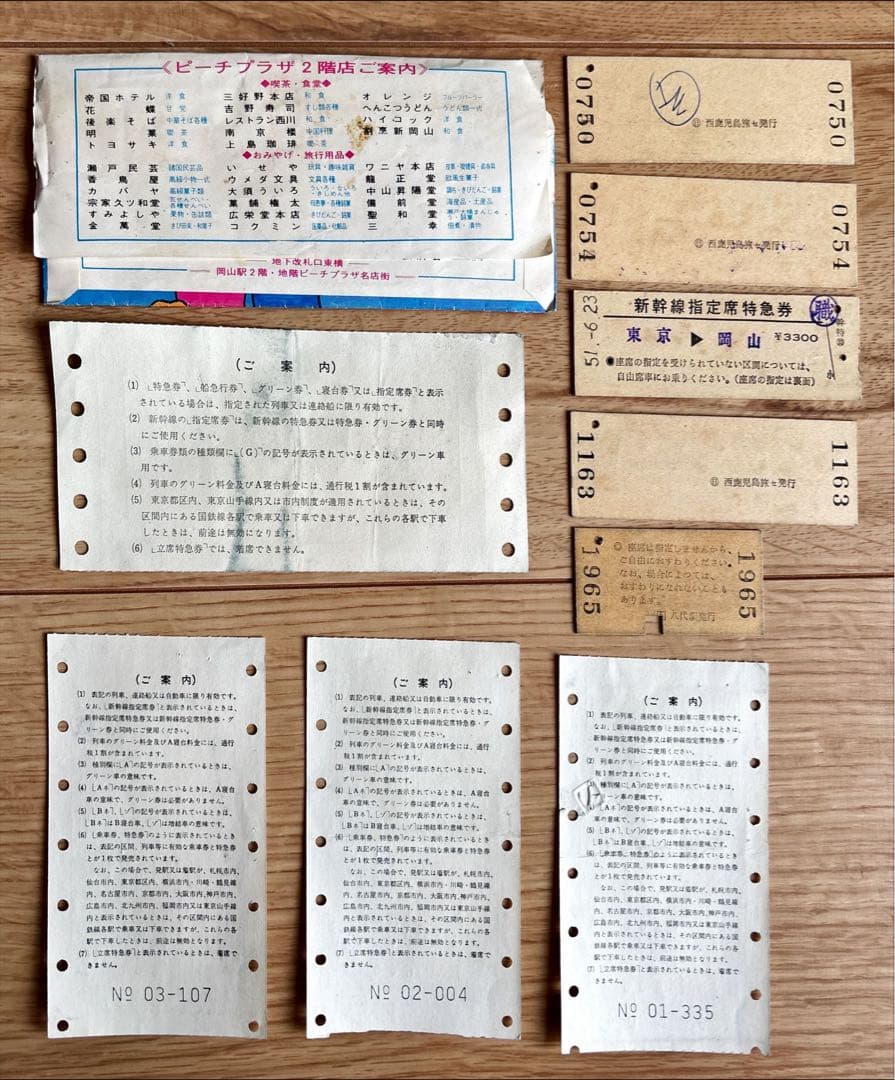 《ピーチプラザ2階店ご案内》
◆喫茶・食堂◆
帝国ホテル 洋食 三好野本店 和食 オレンジ フルーツパーラー
花蝶 甘党 吉野寿司 すし類各種 へんこつうどん うどん類一式
後楽そば 中華そば各種 レストラン西川 和食 ハイコック 洋食
明菓 喫茶 南京楼 中国料理 割烹新岡山 和食
トヨサキ 洋食 上島珈琲 喫茶
◆おみやげ・旅行用品◆
瀬戸民芸 諸国民芸品 いせや 玩具・趣味雑貨 ワニヤ本店
香鳥屋 高級小物一式 ウメダ文具 文具各種 龍正堂 欧風生菓子
カバヤ 高級菓子類 大須ういろ 中山昇陽堂 調布・きびだんご・銘菓
宗家久ツ和堂 瓦せんべい・各種せんべい 菓舗権太 備前堂 海産品・土産品
すみよしや 果物・缶詰類 広栄堂本店 きびだんご・銘菓 聖和堂 瀬戸大橋まんじゅう・銘菓
金萬堂 きび田楽・和菓子 コクミン 医薬品・化粧品 三幸 佃煮・漬物
地下改札口東横
岡山駅2階・地階ピーチプラザ名店街
0750
㊐西鹿児島旅セ発行
0750
0754
㊐西鹿児島旅セ発行
0754
51.-6.23
新幹線指定席特急券
職
東京▶岡山 ¥3300
●座席の指定を受けられていない区間については、
自由席車にお乗りください。(座席の指定は裏面)
1163
㊐西鹿児島旅セ発行
1163
1965
◎座席は指定しませんから、
ご自由におすわりください。
なお、場合によっては、
おすわりになれないことも
あります。
八代駅発行
1965
(ご案内)
(1) 「特急券」、「船急行券」、「グリーン券」、「寝台券」又は「指定席券」と表示
されている場合は、指定された列車又は連絡船に限り有効です。
(2) 新幹線の「指定席券」は、新幹線の特急券又は特急券・グリーン券と同時
にご使用ください。
(3) 乗車券類の種類欄に「(G)の記号が表示されているときは、グリーン車
用です。
(4) 列車のグリーン料金及びA寝台料金には、通行税1割が含まれています。
(5) 東京都区内、東京山手線内又は市内制度が適用されているときは、その
区間内にある国鉄線各駅で乗車又は下車できますが、これらの各駅で下車
したときは、前途は無効になります。
(6) 「立席特急券」では、着席できません。
(ご案内)
(1) 表記の列車、連絡船又は自動車に限り有効です。
なお、「新幹線指定席券」と表示されているときは、
新幹線指定席特急券又は新幹線指定席特急券・グ
リーン券と同時にご使用ください。
(2) 列車のグリーン料金及びA寝台料金には、通行
税1割が含まれています。
(3) 種別欄に「A」の記号が表示されているときは、
グリーン車の意味です。
(4) 「Aネ」の記号が表示されているときは、A寝台
車の意味で、グリーン券は必要がありません。
(5) 「Bネ」、「ゾ」の記号が表示されているときは、
「Bネ」はB寝台車、「ゾ」は増結車の意味です。
(6) 「乗車券、特急券」のように表示されているとき
は、表記の区間、列車等に有効な乗車券と特急券
とが1枚で発売されています。
なお、この場合で、発駅又は着駅が、札幌市内、
仙台市内、東京都区内、横浜市内・川崎・鶴見線
内、名古屋市内、京都市内、大阪市内、神戸市内、
広島市内、北九州市内、福岡市内又は東京山手線
内と表示されているときは、その区間内にある国
鉄線各駅で乗車又は下車できますが、これらの各
駅で下車したときは、前途は無効となります。
(7) 「立席特急券」と表示されているときは、着席で
きません。
№ 03-107
(ご案内)
(1) 表記の列車、連絡船又は自動車に限り有効です。
なお、「新幹線指定席券」と表示されているときは、
新幹線指定席特急券又は新幹線指定席特急券・グ
リーン券と同時にご使用ください。
(2) 列車のグリーン料金及びA寝台料金には、通行
税1割が含まれています。
(3) 種別欄に「A」の記号が表示されているときは、
グリーン車の意味です。
(4) 「Aネ」の記号が表示されているときは、A寝台
車の意味で、グリーン券は必要がありません。
(5) 「Bネ」、「ゾ」の記号が表示されているときは、
「Bネ」はB寝台車、「ゾ」は増結車の意味です。
(6) 「乗車券、特急券」のように表示されているとき
は、表記の区間、列車等に有効な乗車券と特急券
とが1枚で発売されています。
なお、この場合で、発駅又は着駅が、札幌市内、
仙台市内、東京都区内、横浜市内・川崎・鶴見線
内、名古屋市内、京都市内、大阪市内、神戸市内、
広島市内、北九州市内、福岡市内又は東京山手線
内と表示されているときは、その区間内にある国
鉄線各駅で乗車又は下車できますが、これらの各
駅で下車したときは、前途は無効となります。
(7) 「立席特急券」と表示されているときは、着席で
きません。
№ 02-004
(ご案内)
(1) 表記の列車、連絡船又は自動車に限り有効です。
なお、「新幹線指定席券」と表示されているときは、
新幹線指定席特急券又は新幹線指定席特急券・グ
リーン券と同時にご使用ください。
(2) 列車のグリーン料金及びA寝台料金には、通行
税1割が含まれています。
(3) 種別欄に「A」の記号が表示されているときは、
グリーン車の意味です。
(4) 「Aネ」の記号が表示されているときは、A寝台
車の意味で、グリーン券は必要がありません。
(5) 「Bネ」、「ゾ」の記号が表示されているときは、
「Bネ」はB寝台車、「ゾ」は増結車の意味です。
(6) 「乗車券、特急券」のように表示されているとき
は、表記の区間、列車等に有効な乗車券と特急券
とが1枚で発売されています。
なお、この場合で、発駅又は着駅が、札幌市内、
仙台市内、東京都区内、横浜市内・川崎・鶴見線
内、名古屋市内、京都市内、大阪市内、神戸市内、
広島市内、北九州市内、福岡市内又は東京山手線
内と表示されているときは、その区間内にある国
鉄線各駅で乗車又は下車できますが、これらの各
駅で下車したときは、前途は無効となります。
(7) 「立席特急券」と表示されているときは、着席で
きません。
№ 01-335